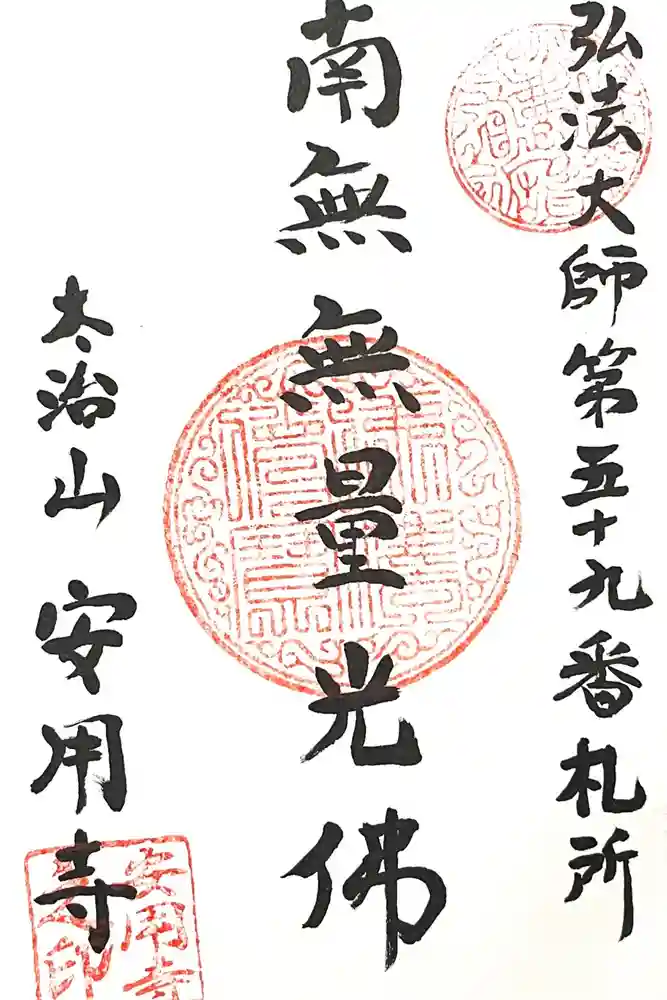 弘法大師第五十九番札所
南無無量光佛
太治山 安用寺
安用寺
之印